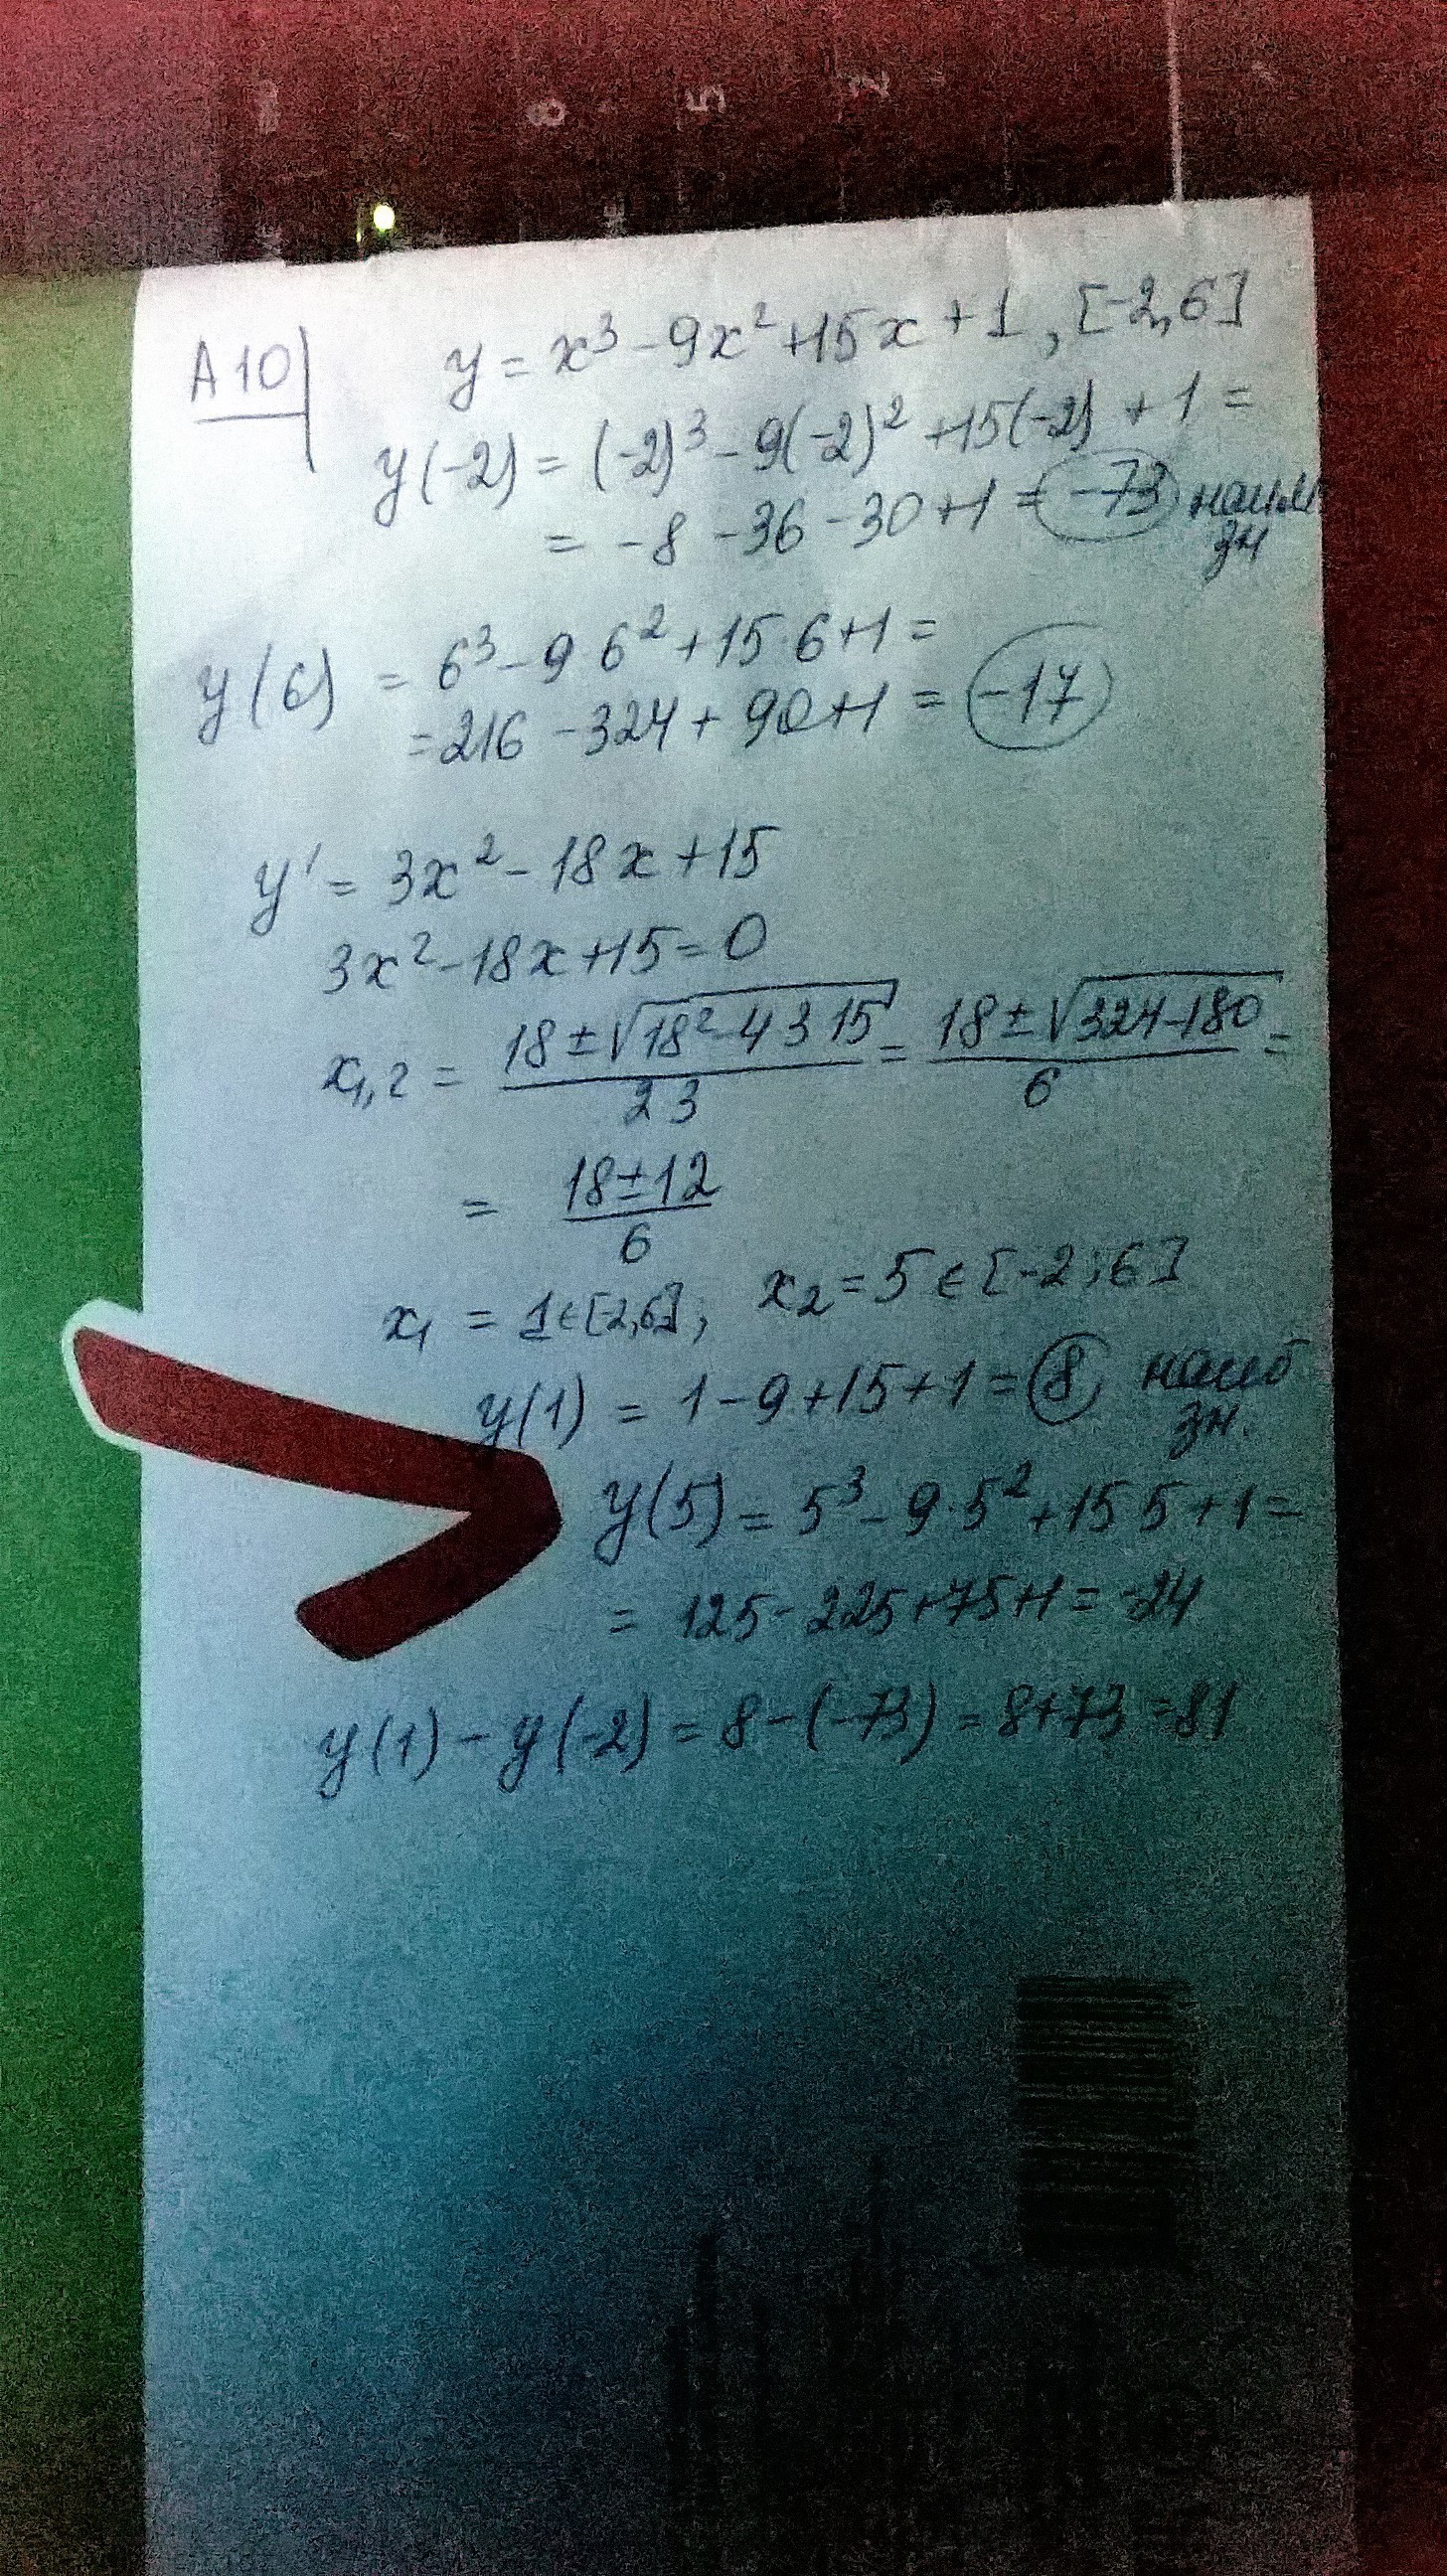 A10
y = x³ - 9x² + 15x + 1, [-2,6]
y(-2) = (-2)³ - 9(-2)² + 15(-2) + 1 =
= -8 - 36 - 30 + 1 = -73 наим зн
y(6) = 6³ - 9·6² + 15·6 + 1 =
= 216 - 324 + 90 + 1 = -17
y' = 3x² - 18x + 15
3x² - 18x + 15 = 0
x₁,₂ = (18 ± √(18² - 4 3 15))/(2 3) = (18 ± √(324 - 180))/6 =
= (18 ± 12)/6
x₁ = 1 ∈ [-2,6]; x₂ = 5 ∈ [-2;6]
y(1) = 1 - 9 + 15 + 1 = 8, наиб зн.
y(5) = 5³ - 9·5² + 15 5 + 1 =
= 125 - 225 + 75 + 1 = -24
y(1) - y(-2) = 8 - (-73) = 8 + 73 = 81